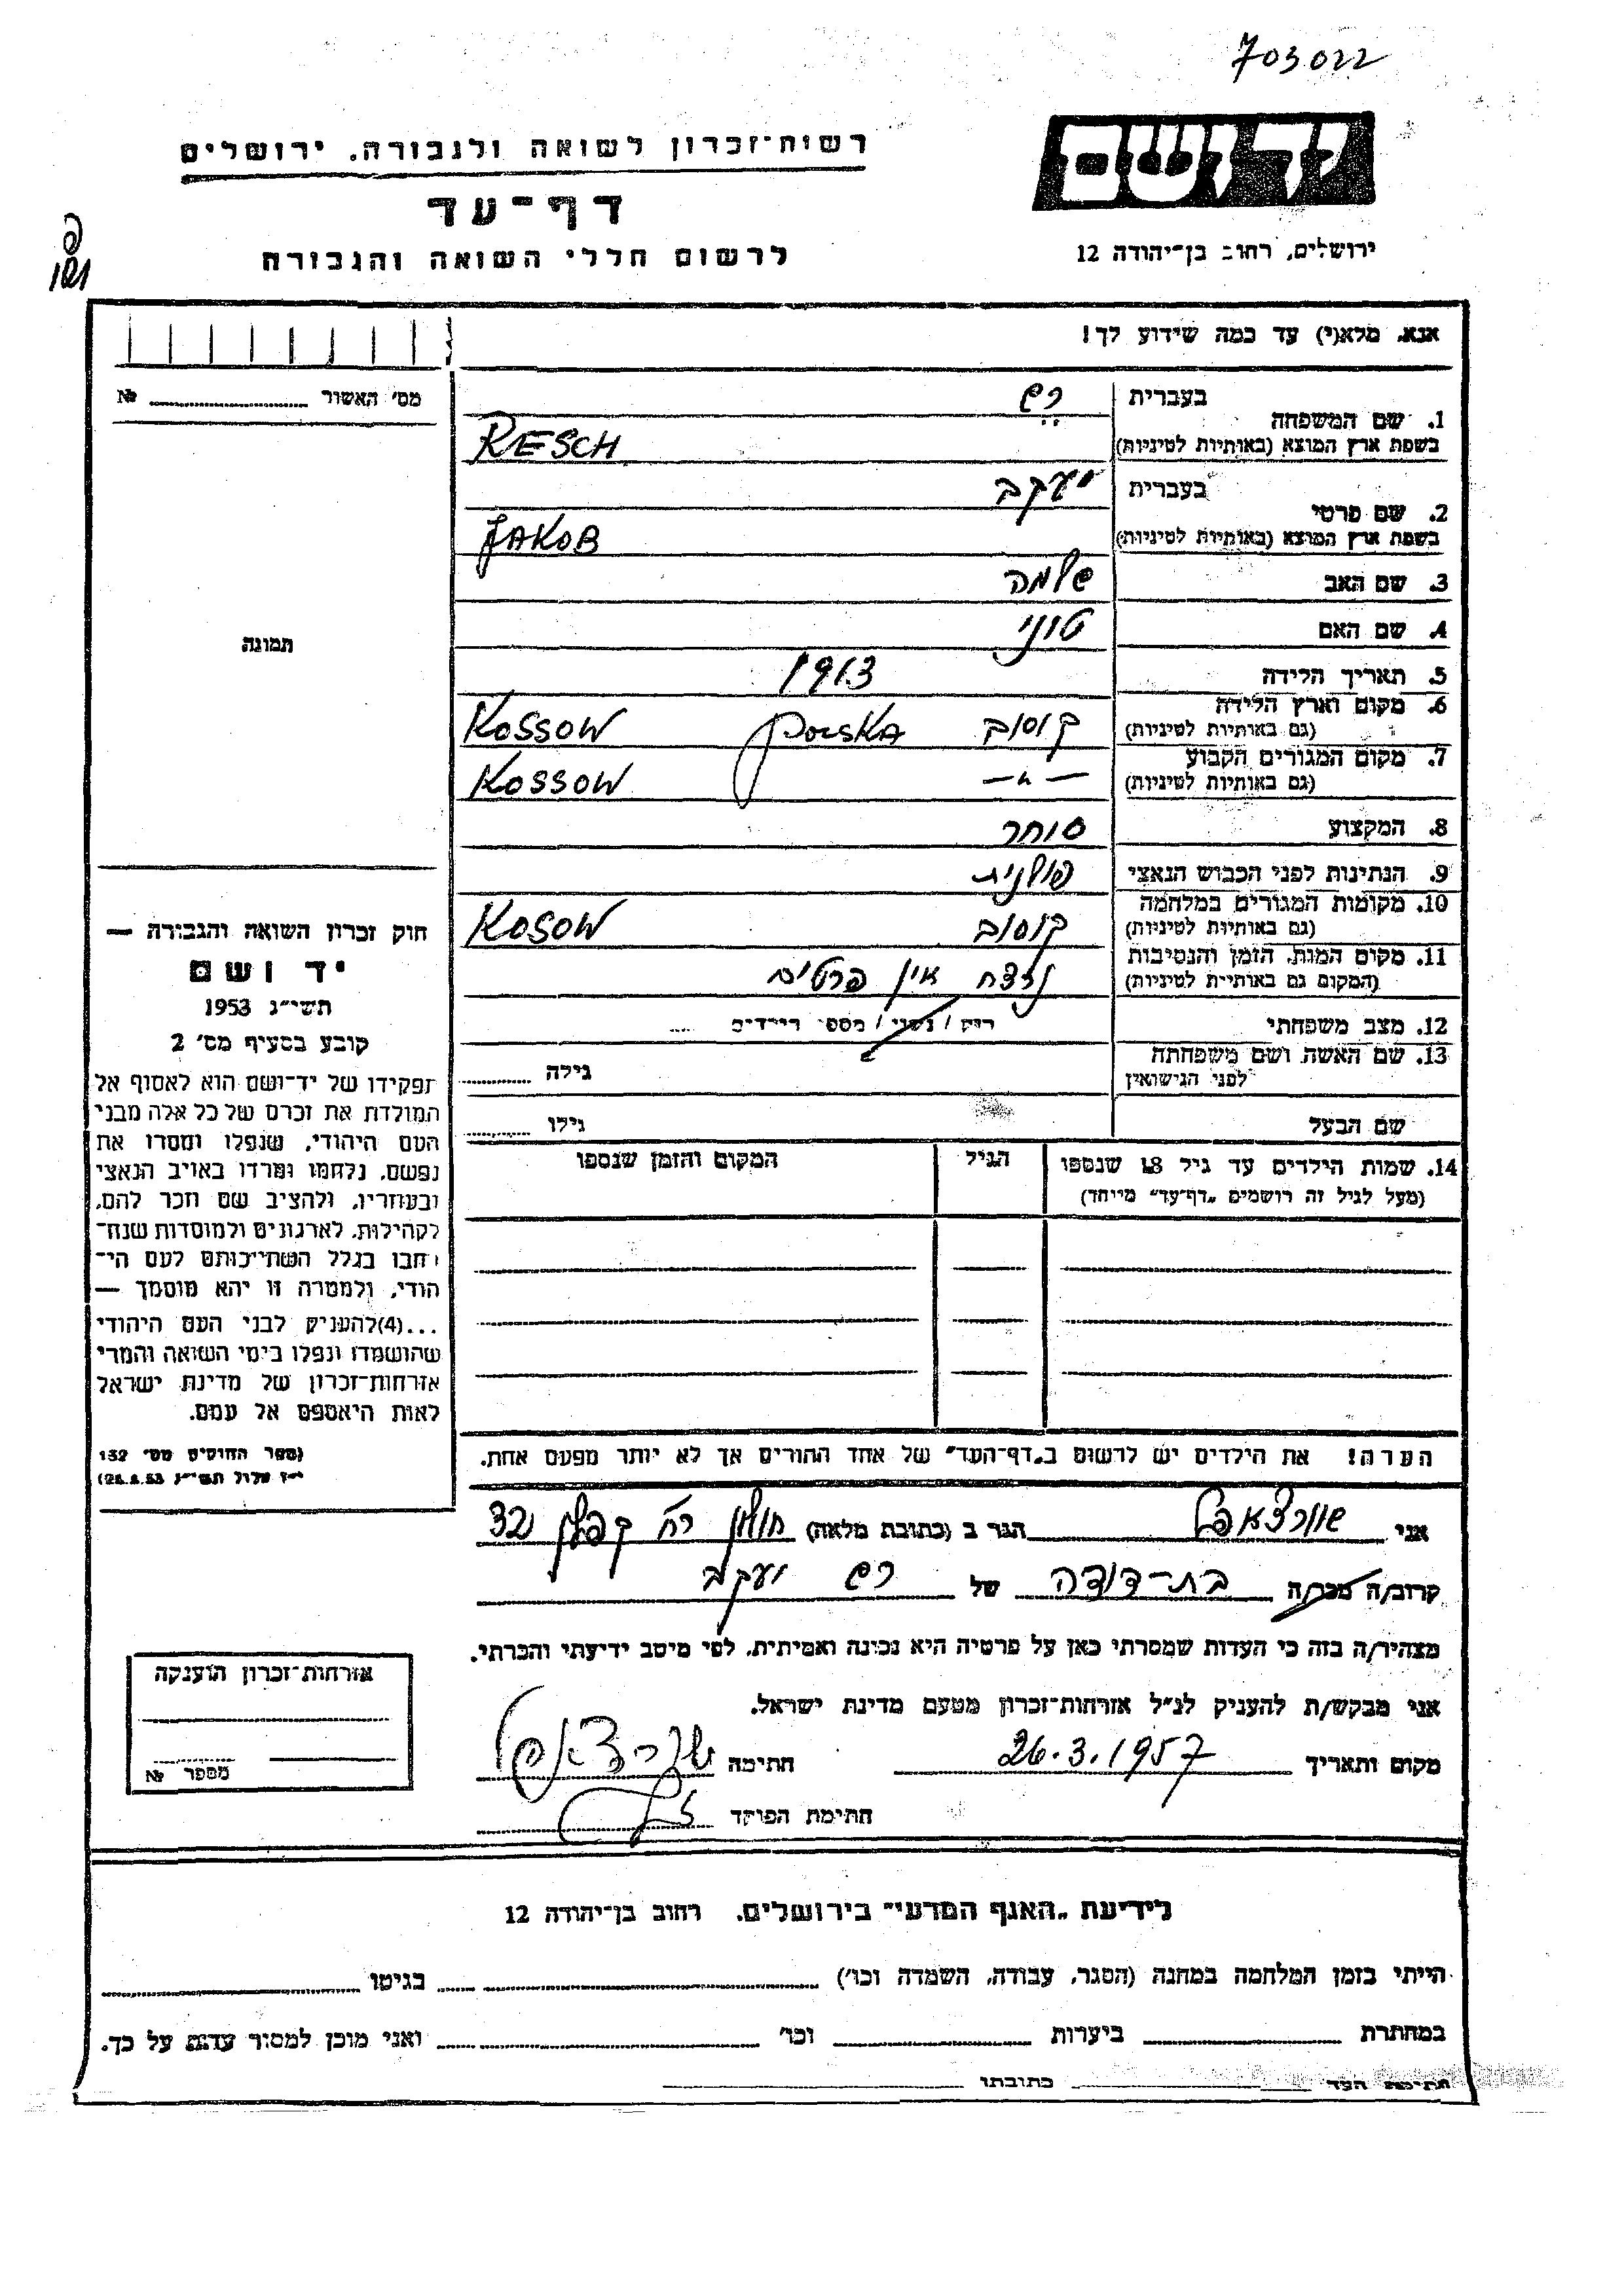 703022
יד ושם
רשות־זכרון לשואה ולגבורה, ירושלים
דף־עד
לרשום חללי השואה והגבורה
ירושלים, רחוב בן־יהודה 12
אנא, מלא(י) עד כמה שידוע לך!
מס' האשור № 
1. שם המשפחה בעברית רש
בשפת ארץ המוצא (באותיות לטיניות) RESCH
2. שם פרטי בעברית יעקב
בשפת ארץ המוצא (באותיות לטיניות) JAKOB
3. שם האב שלמה
4. שם האם טוני
תמונה
5. תאריך הלידה 1913
6. מקום וארץ הלידה (גם באותיות לטיניות) קוסוב POLSKA KOSSOW
7. מקום המגורים הקבוע (גם באותיות לטיניות) —״— KOSSOW
8. המקצוע סוחר
9. הנתינות לפני הכבוש הנאצי פולנית
10. מקומות המגורים במלחמה (גם באותיות לטיניות) קוסוב KOSOW
11. מקום המות, הזמן והנסיבות (המקום גם באותיות לטיניות) נרצח אין פרטים
12. מצב משפחתי רוק / נשוי / מספר הילדים
13. שם האשה ושם משפחתה לפני הנישואין גילה
שם הבעל גילו
14. שמות הילדים עד גיל 18 שנספו הגיל המקום והזמן שנספו
(מעל לגיל זה רושמים „דף־עד״ מיוחד)
חוק זכרון השואה והגבורה —
יד ושם
תשי״ג 1953
קובע בסעיף מס' 2
תפקידו של יד־ושם הוא לאסוף אל
המולדת את זכרם של כל אלה מבני
העם היהודי, שנפלו ומסרו את
נפשם, נלחמו ומרדו באויב הנאצי
ובעוזריו, ולהציב שם וזכר להם,
לקהילות, לארגונים ולמוסדות שנח־
רבו בגלל השתייכותם לעם הי־
הודי, ולמטרה זו יהא מוסמך —
...(4) להעניק לבני העם היהודי
שהושמדו ונפלו בימי השואה והמרי
אזרחות־זכרון של מדינת ישראל
לאות היאספם אל עמם.
(ספר החוקים מס' 132
י״ז אלול תשי״ג 28.8.53)
הערה! את הילדים יש לרשום ב„דף־העד״ של אחד ההורים אך לא יותר מפעם אחת.
אני שוורצאפל הגר ב (כתובת מלאה) חולון רח' קפלן 32
קרוב/ה מכר/ה בת־דודה של רש יעקב
מצהיר/ה בזה כי העדות שמסרתי כאן על פרטיה היא נכונה ואמיתית, לפי מיטב ידיעתי והכרתי.
אני מבקש/ת להעניק לנ״ל אזרחות־זכרון מטעם מדינת ישראל.
מקום ותאריך 26.3.1957 חתימה שורצאפל
חתימת הפוקד
אזרחות־זכרון הוענקה
מספר №
לידיעת „האגף המדעי״ בירושלים, רחוב בן־יהודה 12
הייתי בזמן המלחמה במחנה (הסגר, עבודה, השמדה וכו') בגיטו
במחתרת ביערות וכו' ואני מוכן למסור עדות על כך.
חתימת העד כתובתו